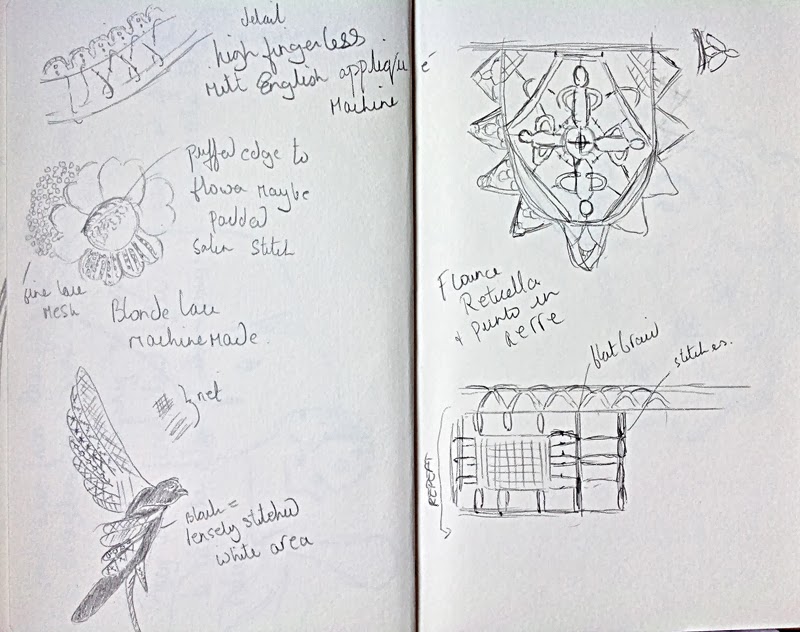 detail
high fingerless
Mitt English appliqué
Machine
puffed edge to
flower maybe
padded
satin stitch
fine lace
mesh
Blonde lace
machine made.
net
Black =
densely stitched
white area
Flounce
Reticella
+ punto in
aerre
flat braid
stitches.
REPEAT